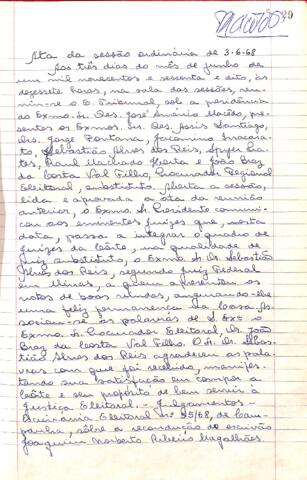 29
Ata da sessão ordinária de 3-6-68
Aos três dias do mês de junho de
um mil novecentos e sessenta e oito, às
dezessete horas, na sala das sessões, reu-
niu-se o E. Tribunal, sob a presidência
do Exmo. Sr. Des. José Américo Macêdo, pre-
sentes os Exmos. Srs. Des. Assis Santiago,
Drs. Jorge Fontana, Jacomino
Sebastião Alves dos Reis,
Raul Machado Horta e João Braz
da Costa Val Filho, Procurador Regional
Eleitoral, substituto. Aberta a sessão,
lida e aprovada a ata da reunião
anterior, o Exmo. Sr. Presidente comuni-
cou aos eminentes Juízes que, nesta
data, passa a integrar o quadro de
juízes da Côrte, na qualidade de
juiz substituto, o Exmo. Sr. Dr. Sebastião
Alves dos Reis, segundo Juiz Federal
em Minas, a quem apresentou os
votos de boas vindas, augurando-lhe
uma feliz permanência na Casa. As-
sociam-se às palavras de S. Exª o
Exmo. Sr. Procurador Eleitoral, Dr. João
Braz da Costa Val Filho. O Dr. Sebas-
tião Alves dos Reis agradeceu as pala-
vras com que foi recebido, manifes-
tando sua satisfação em compor a
Côrte e seu propósito de bem servir à
Justiça Eleitoral. - Julgamentos -
Escrivania Eleitoral nº 25/68, de Cam-
panha, sôbre a recondução do escrivão
Joaquim Norberto Ribeiro Magalhães.